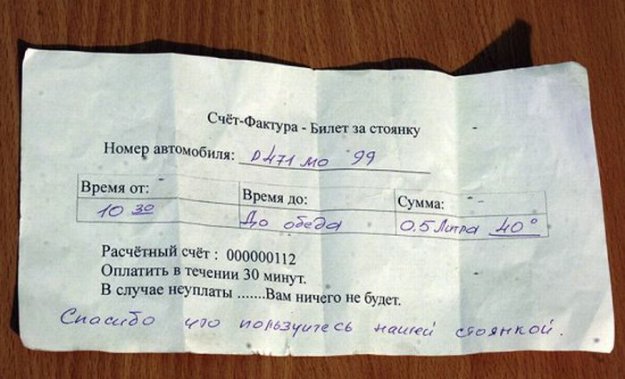 Счёт-Фактура - Билет за стоянку
Номер автомобиля: р471мо 99
Время от: Время до: Сумма:
10 30 До обеда 0.5 Литра 40°
Расчётный счёт : 000000112
Оплатить в течении 30 минут.
В случае неуплаты .......Вам ничего не будет.
Спасибо что пользуетесь нашей стоянкой.